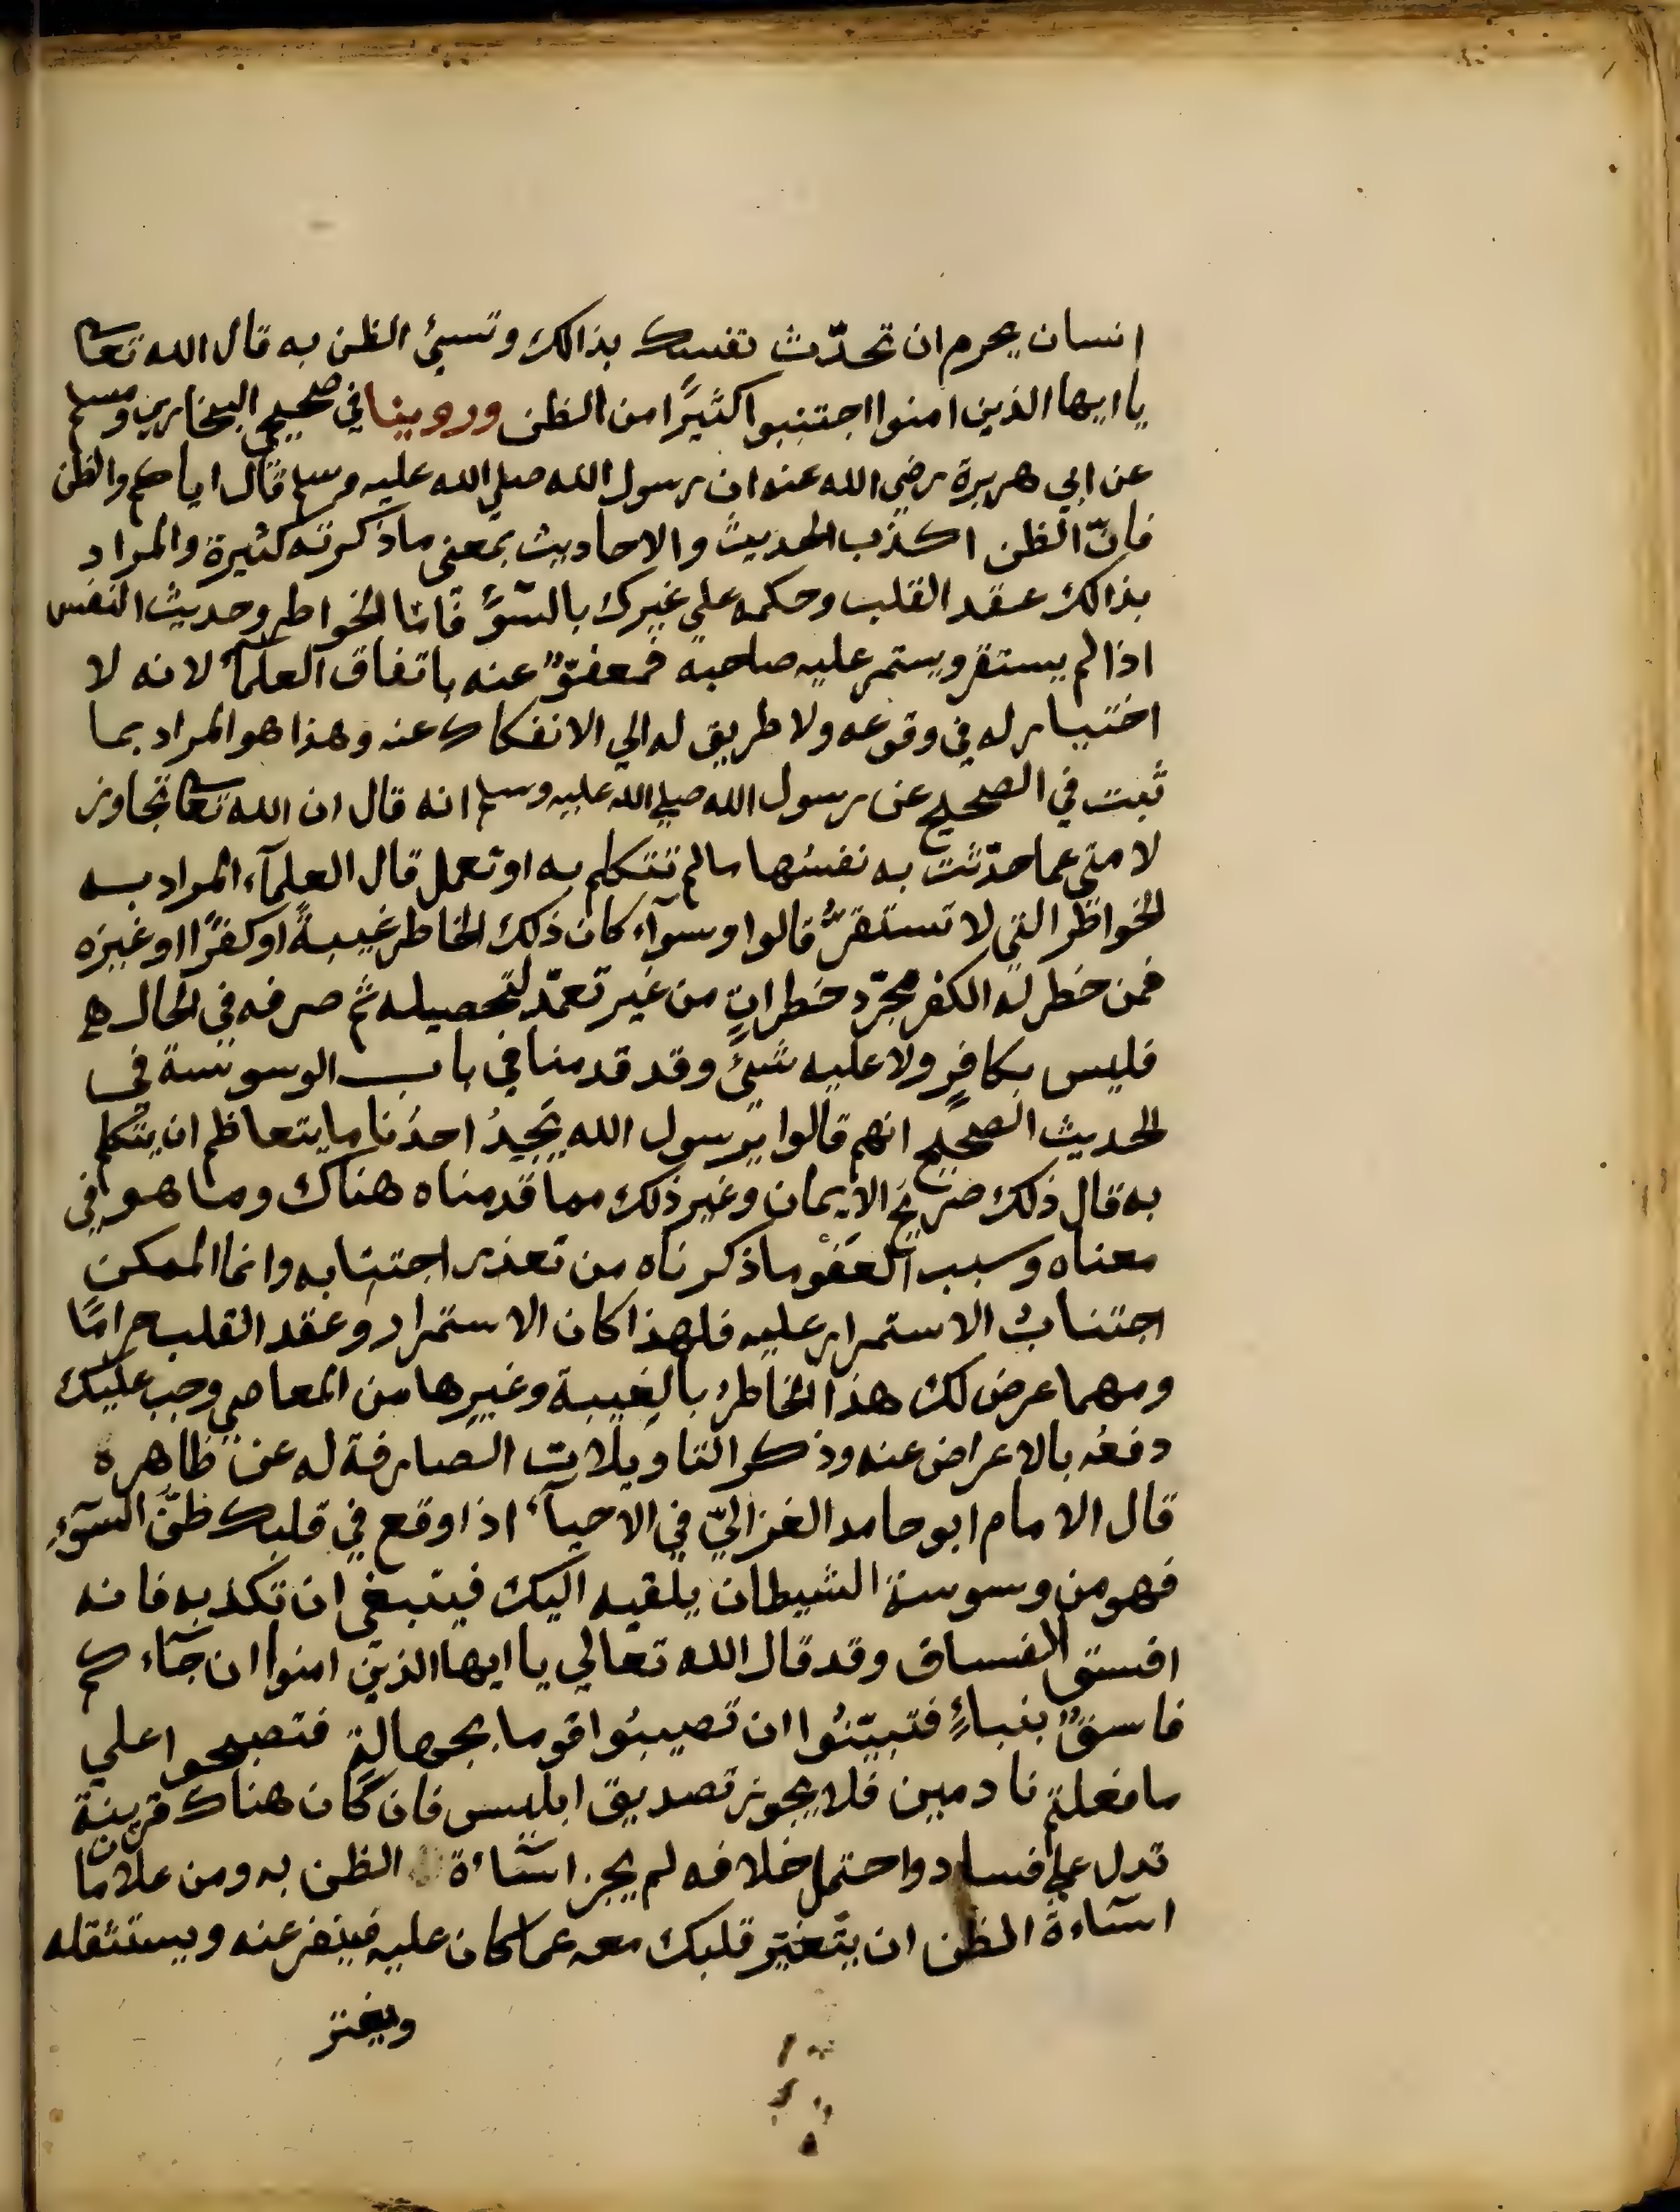 انسان يحرم ان تحدّث نفسك بذالك وتسيئ الظن به قال الله تعالى
يا ايها الذين امنوا اجتنبوا كثيرًا من الظن وروينا في صحيحي البخاري ومسلم
عن ابي هريرة رضي الله عنه ان رسول الله صلي الله عليه وسلم قال اياكم والظن
فانّ الظن اكذب الحديث والاحاديث بمعني ما ذكرته كثيرة والمراد
بذالك عقد القلب وحكمه علي غيرك بالسّوءِ فامّا الخواطر وحديث النفس
اذا لم يستقر ويستمر عليه صاحبه فمعفوٌّ عنه باتفاق العلمآء لانه لا
اختيار له في وقوعه ولا طريق له الي الانفكاك عنه وهذا هو المراد بما
ثبت في الصحيح عن رسول الله صلي الله عليه وسلم انه قال ان الله تعالى تجاوز
لامتي عما حدّثت به نفسُها ما لم تتكلم به او تعمل قال العلمآء المراد به
الخواطر التي لا تستقرُّ قالوا وسوآء كان ذلك الخاطر غيبةً او كفرًا او غيره
فمن خطر له الكفر مجرّد خطرانٍ من غير تعمّد لتحصيله ثم صرفه في الحال
فليس بكافرٍ ولا عليه شيئ وقد قدمنا في باب الوسوسة في
الحديث الصحيح انهم قالوا يرسول الله يَجِدُ احدُنا ما يتعاظم ان يتكلم
به قال ذلك صريح الايمان وغير ذلك مما قدمناه هناك وما هو في
معناه وسبب العَفْو ما ذكرناه من تعذر اجتنابه وانما الممكن
اجتناب الاستمرار عليه فلهذا كان الاستمرار وعقد القلب حرامًا
ومهما عرض لك هذا الخاطر بالغيبة وغيرها من المعاصي وجب عليك
دفعُه بالاعراض عنه وذكر التاويلات الصارفة له عن ظاهره
قال الامام ابو حامد الغزاليّ في الاحيآء اذا وقع في قلبك ظنّ السّوءِ
فهو من وسوسة الشيطان يلقيه اليك فينبغي ان تكذبه فانه
افسق الفساق وقد قال الله تعالي يا ايها الذين امنوا ان جآءكم
فاسقٌ بنباءٍ فتبيّنُوا ان تصيبُوا قوما بجهالةٍ فتصبحوا علي
ما فعلتم نادمين فلا يجوز تصديق ابليس فان كان هناك قرينة
تدل علي فساد واحتمل خلافه لم يجز اسآءة الظن به ومن علامات
اسآءة الظن ان يتغيّر قلبك معه عما كان عليه فينفر عنه ويستثقله
ويفتر